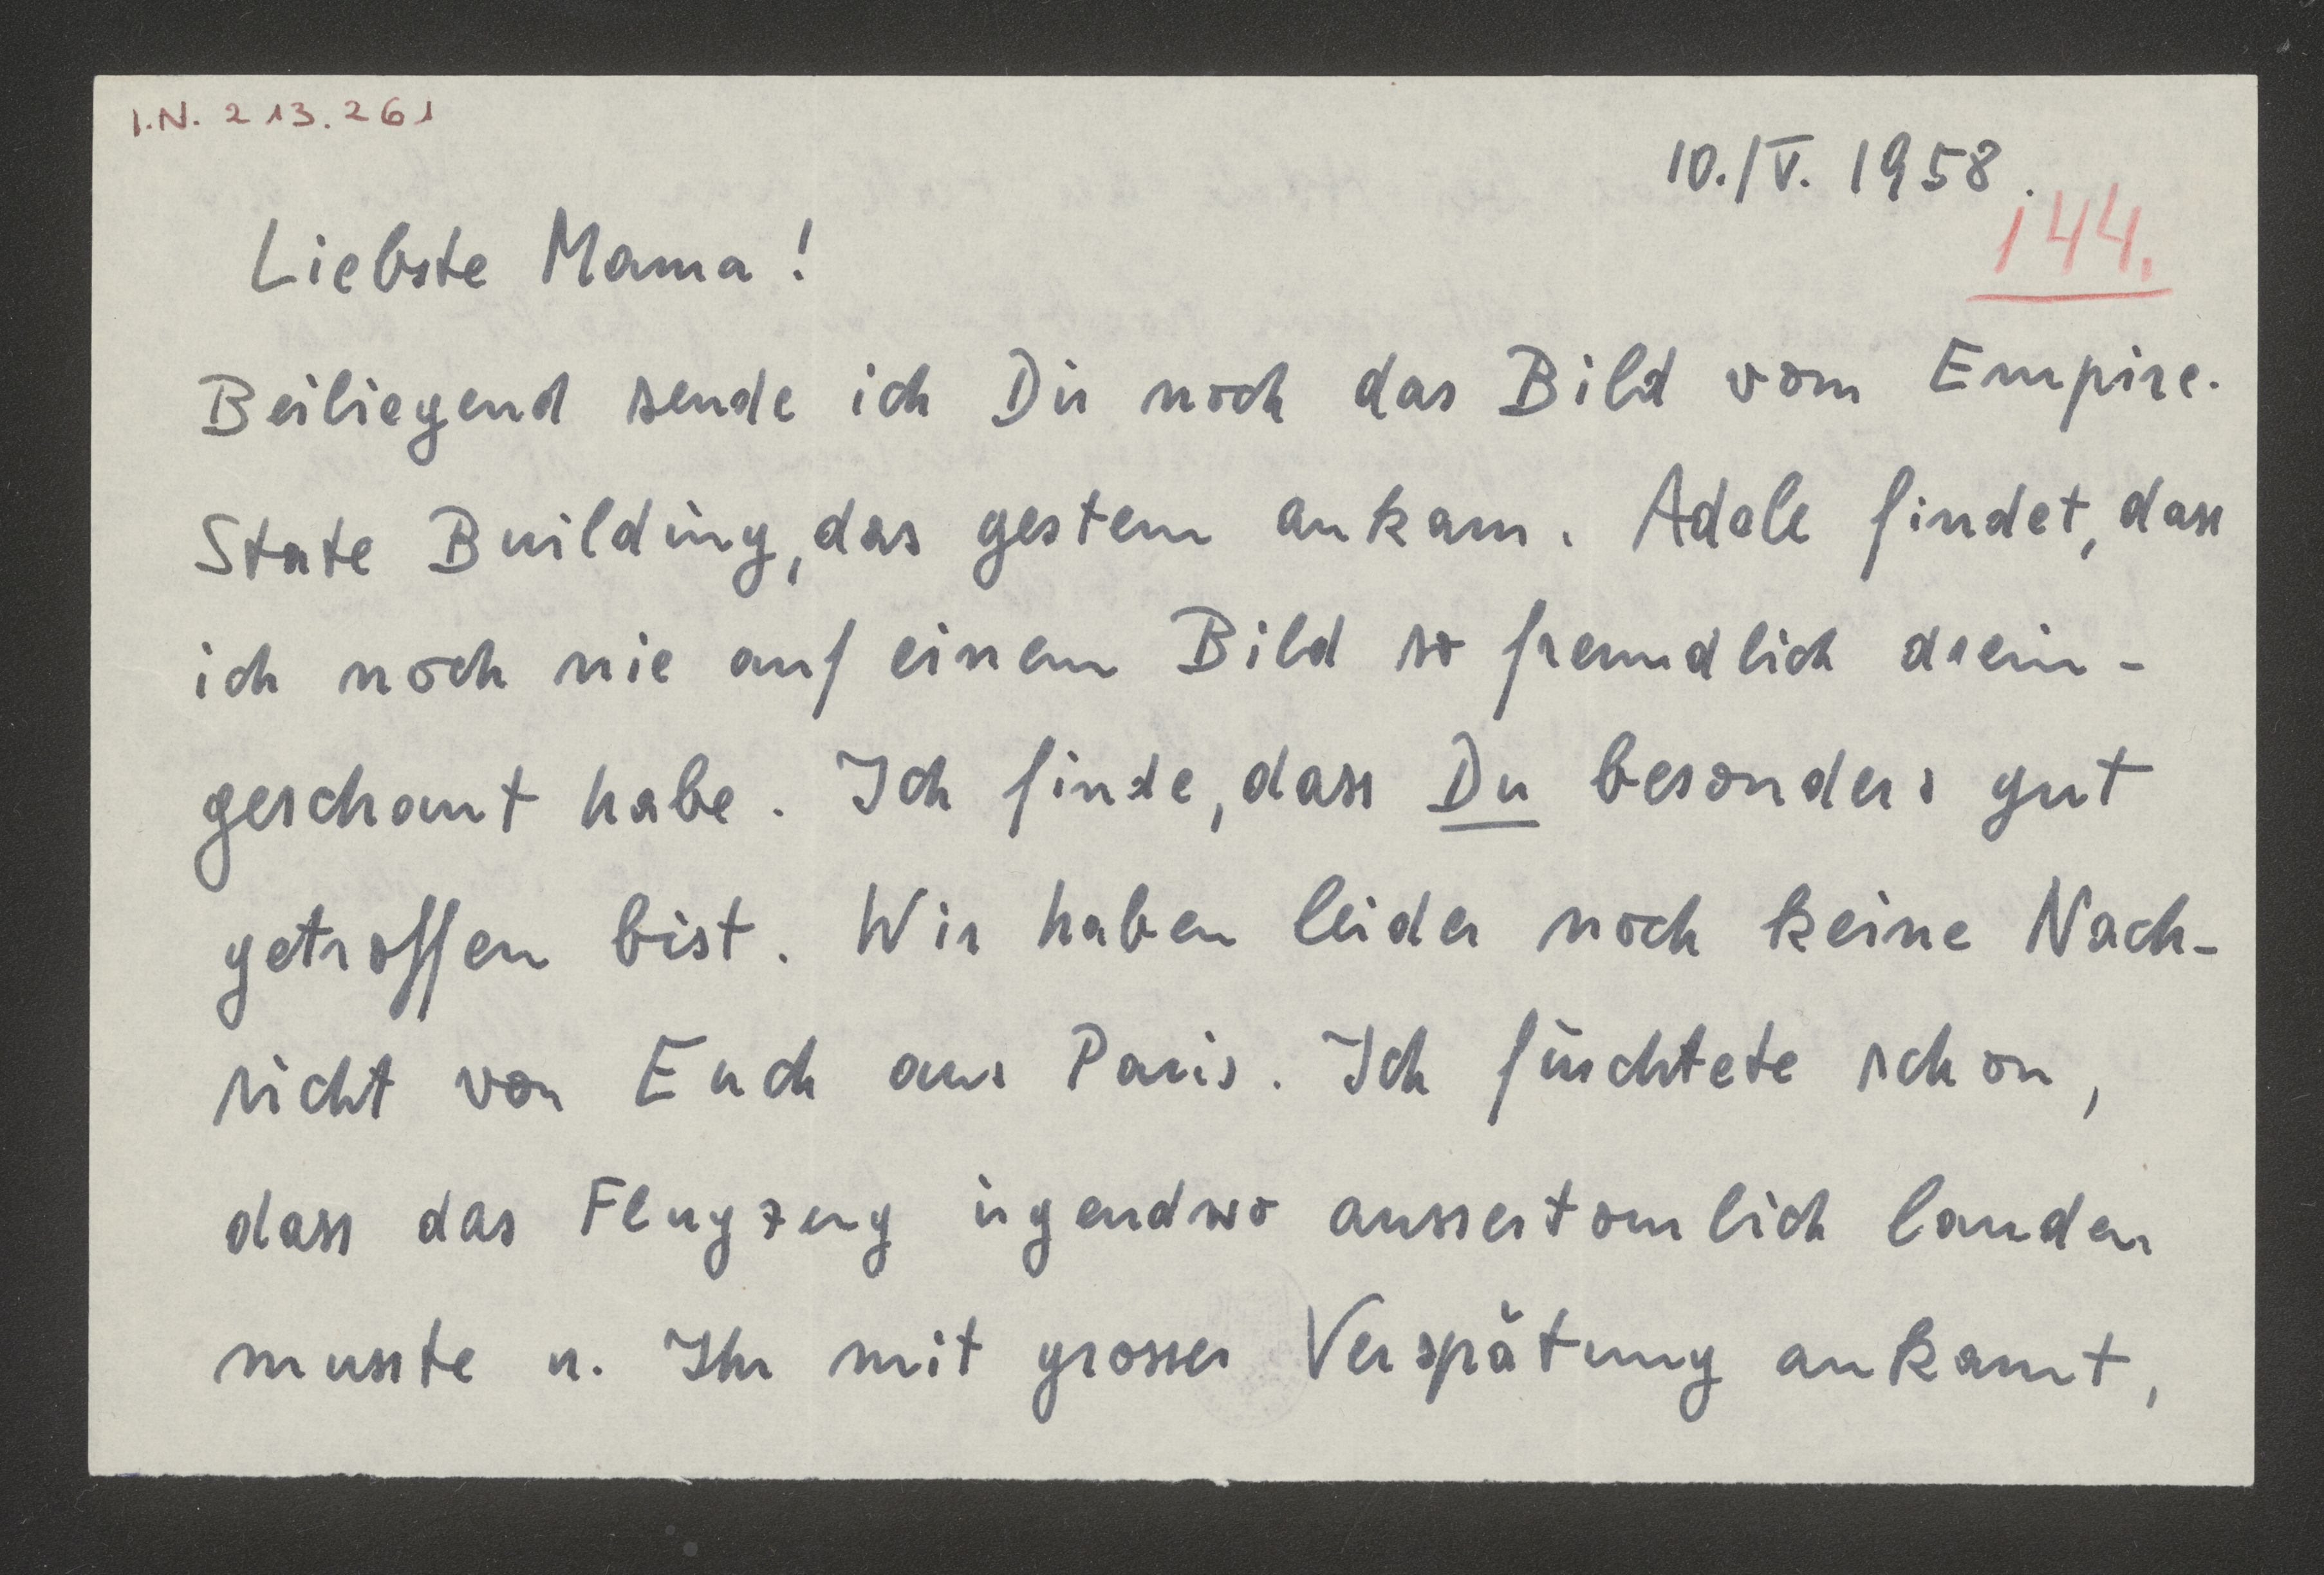 I.N. 213.261
10./V. 1958.
144.
Liebste Mama!
Beiliegend sende ich Dir noch das Bild vom Empire.
State Building, das gestern ankam. Adele findet, dass
ich noch nie auf einem Bild so freundlich drein-
geschaut habe. Ich finde, dass Du besonders gut
getroffen bist. Wir haben leider noch keine Nach-
richt von Euch aus Paris. Ich fürchtete schon,
dass das Flugzeug irgendwo aussertourlich landen
musste u. Ihr mit grosser Verspätung ankamt,